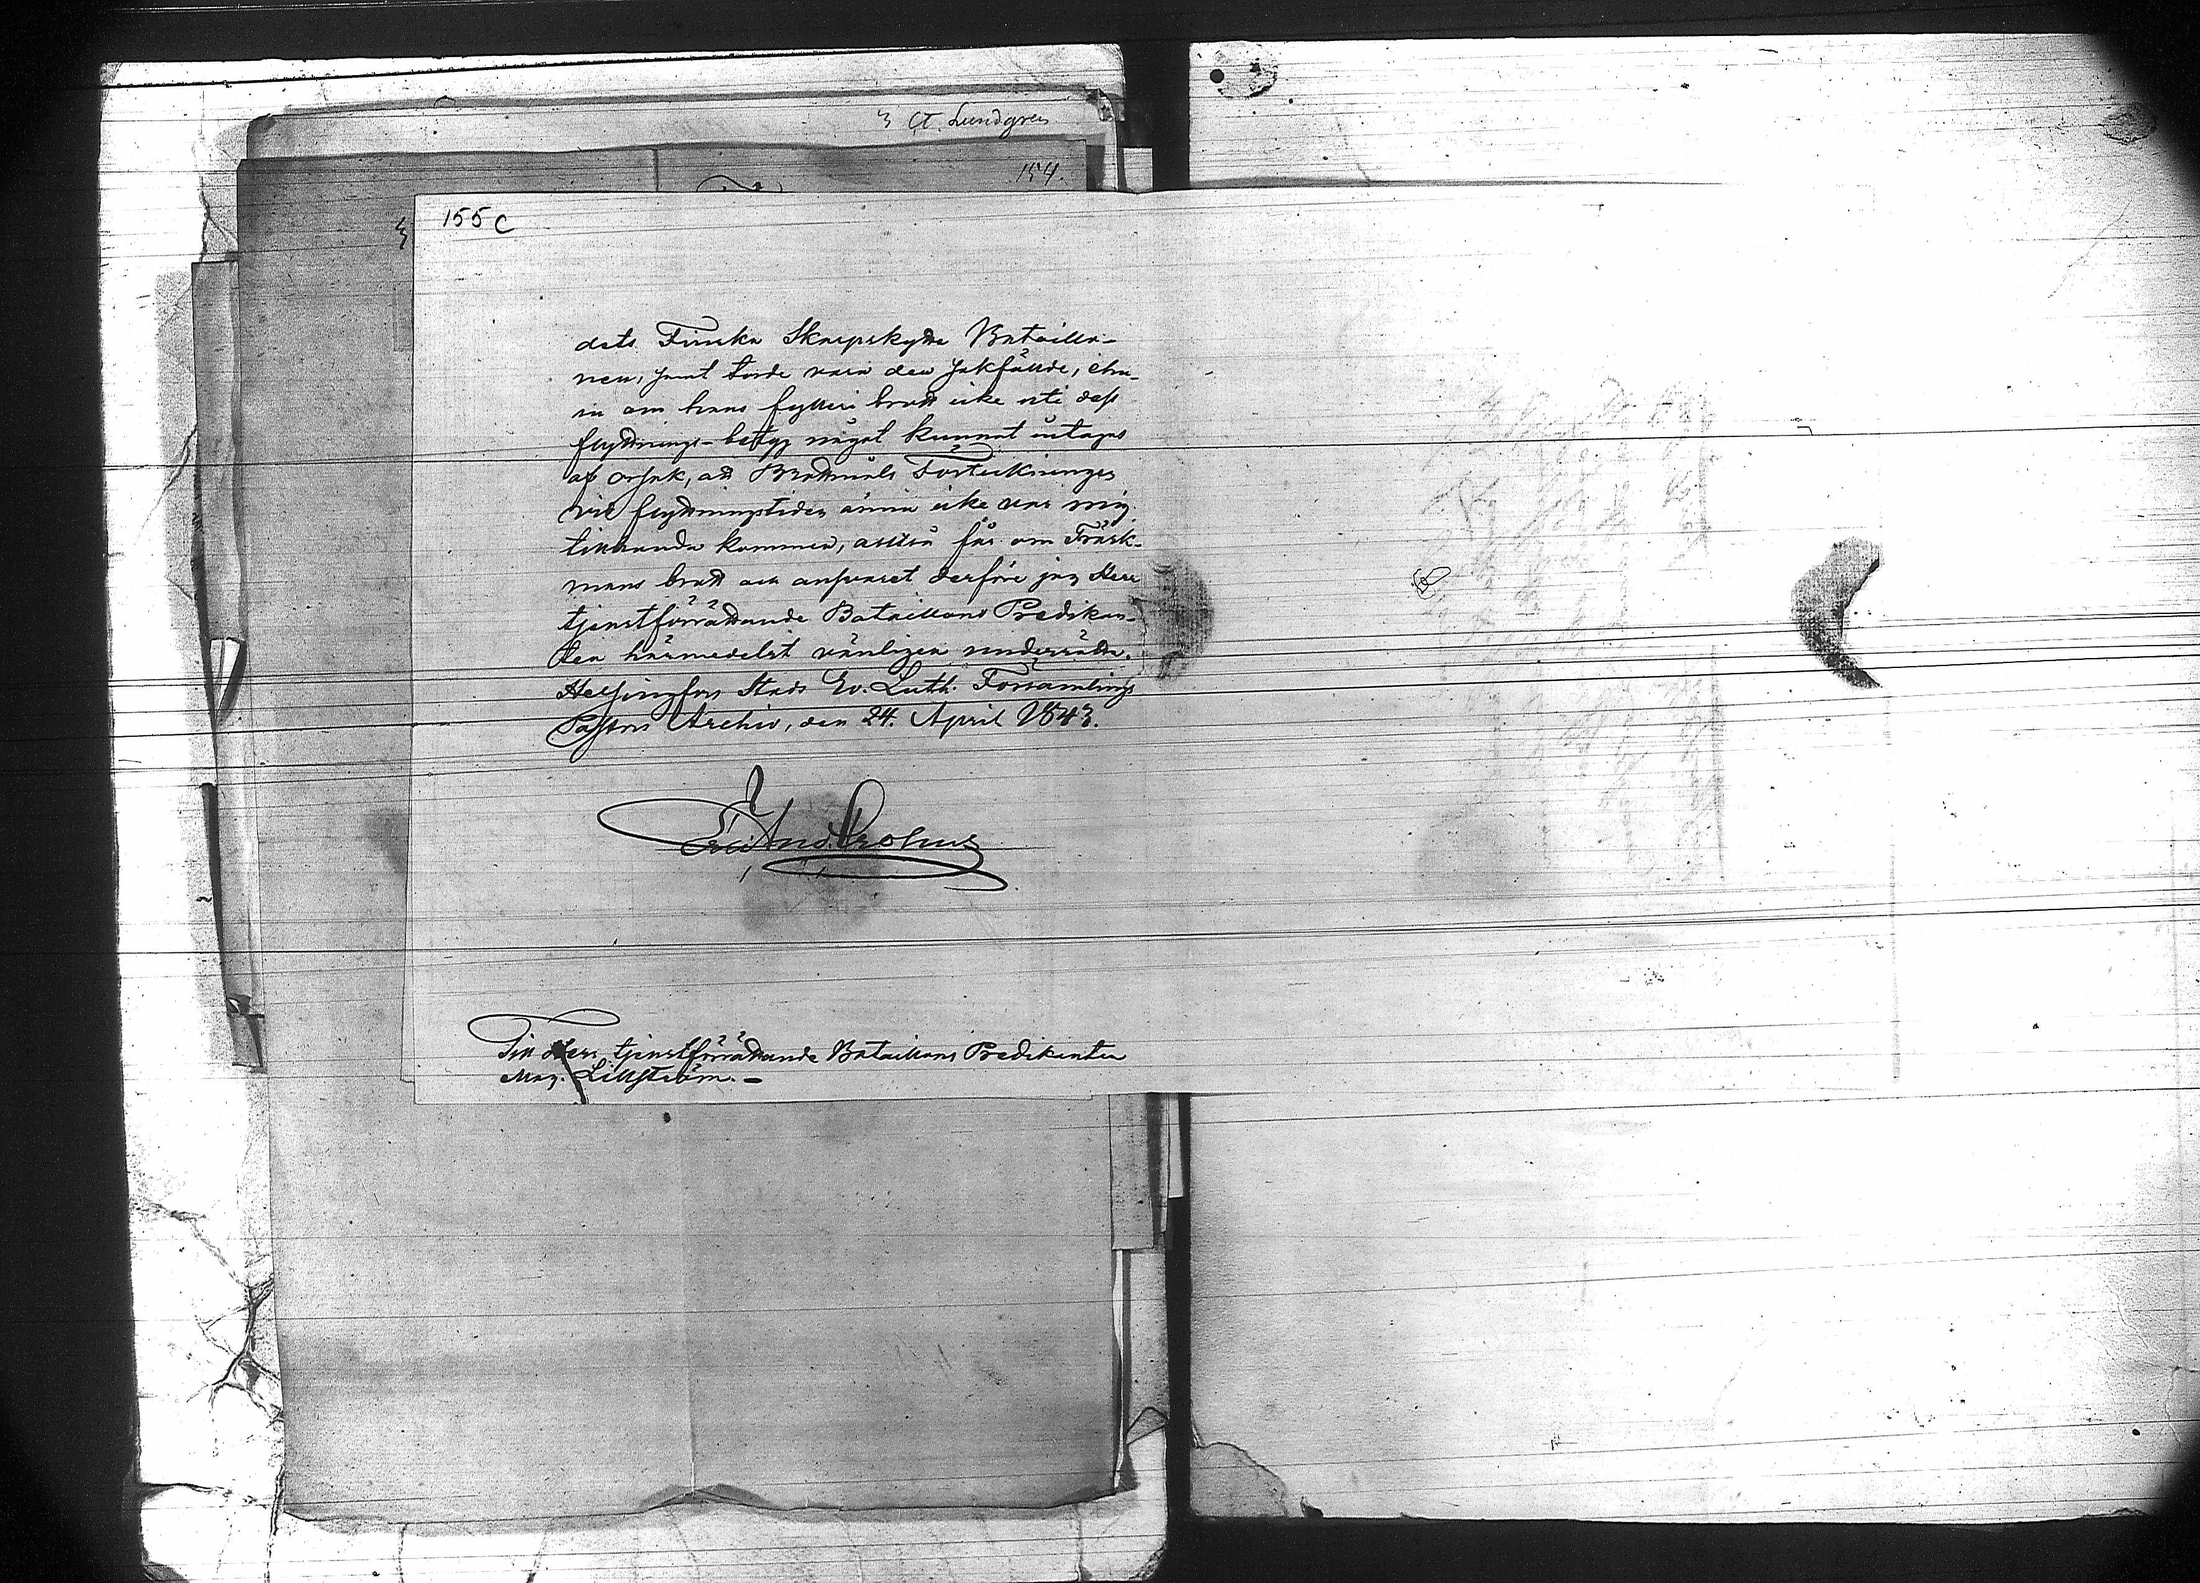 Ct. Lundgren
154.
155 C
dets Finska Skarpskytte Bataillo-
nen, samt torde vara den sakfällde, ehu-
ru om hans fylleri brott icke uti dess
flyttnings-betyg något kunnat intagas
af orsak, att Brottmåls Förteckningen
vid flyttningstiden ännu icke var mig
tillhanda kommen, alltså får om Träsk-
mans brott och ansvaret derföre jag Herr
tjenstförrättande Bataillons Predikan-
ten härmedelst vänligen underrätta.
Helsingfors Stads Ev. Luth. Församlings
Pastors Archiv, den 24. April 1843.
And. Crohns
Till Herr tjenstförrättande Bataillons Predikanten
Mag. Lillström. -